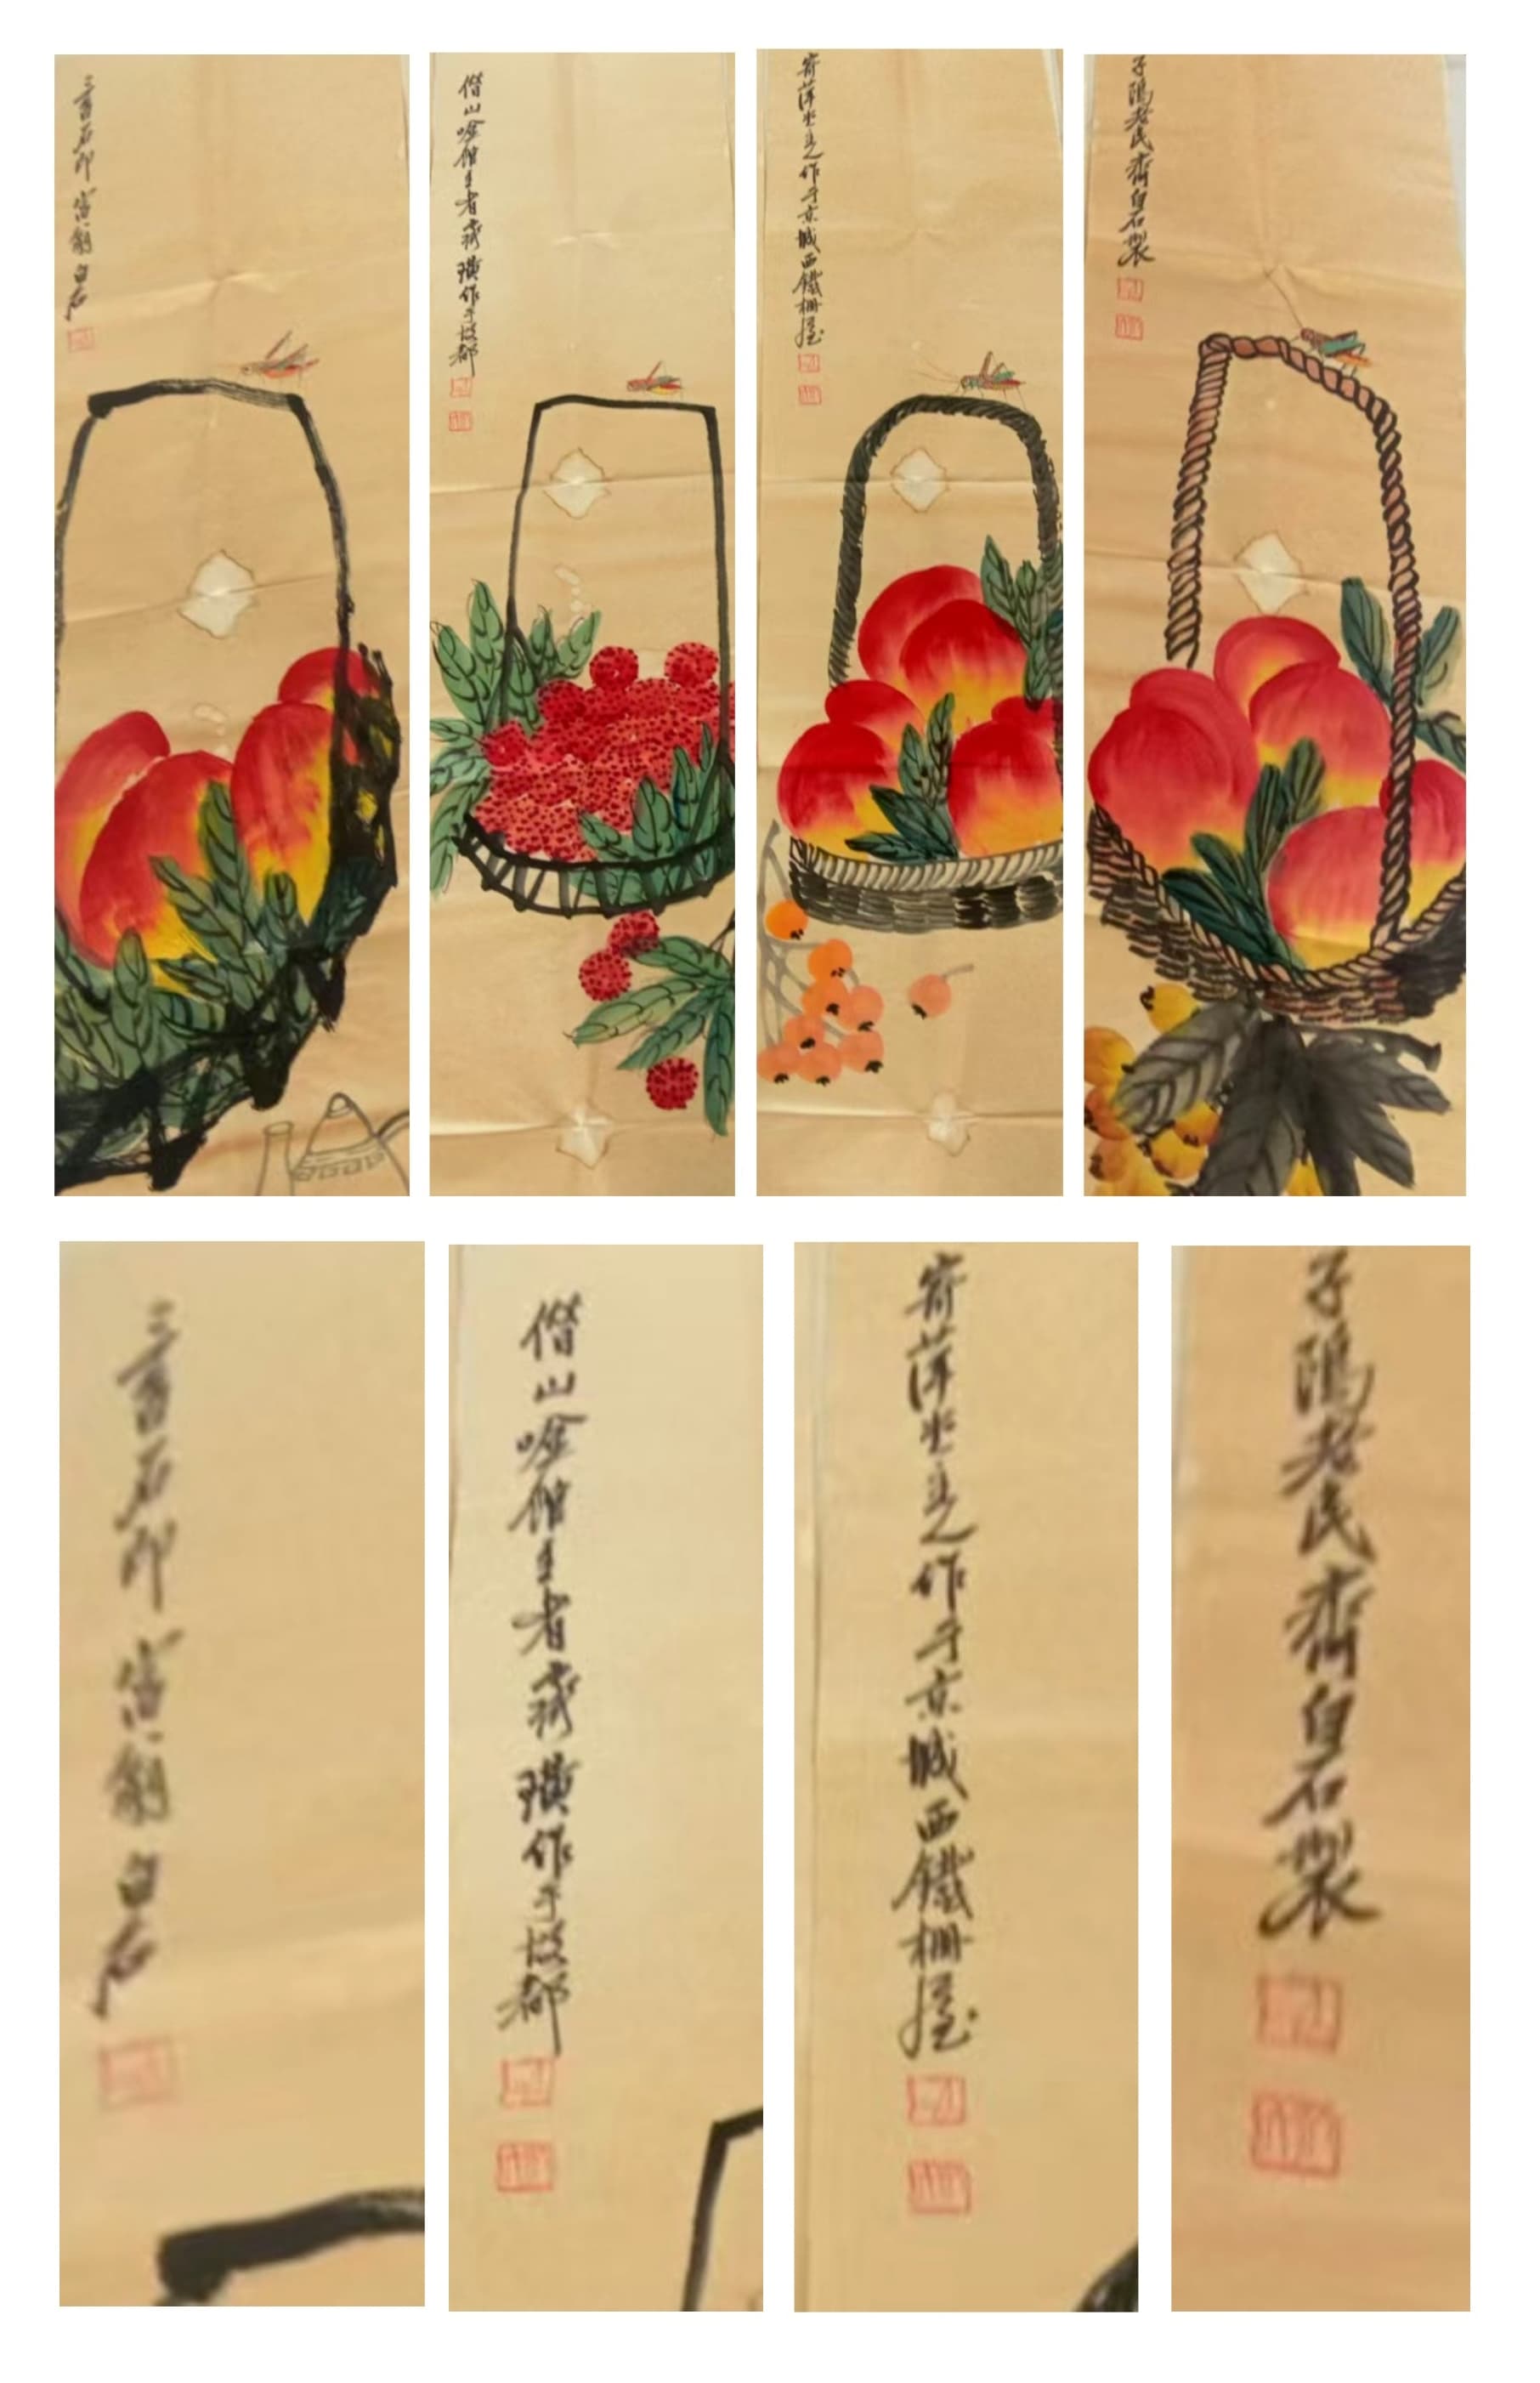 三百石印富翁白石
借山唫館主者齊璜作于故都
寄萍堂主人作于京城西鐵柵屋
子隖老民齊白石製
三百石印富翁白石
借山唫館主者齊璜作于故都
寄萍堂主人作于京城西鐵柵屋
子隖老民齊白石製